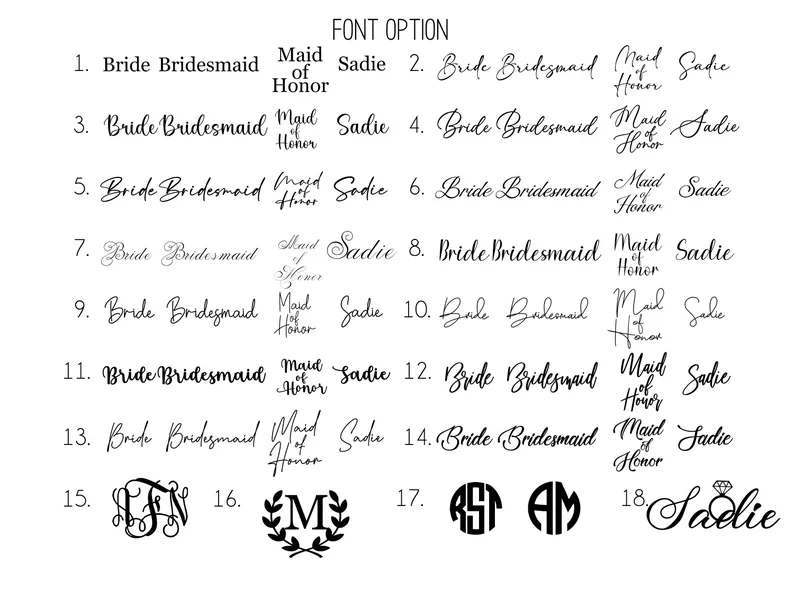 FONT OPTION
1. Bride Bridesmaid Maid of Honor Sadie
2. Bride Bridesmaid Maid of Honor Sadie
3. Bride Bridesmaid Maid of Honor Sadie
4. Bride Bridesmaid Maid of Honor Sadie
5. Bride Bridesmaid Maid of Honor Sadie
6. Bride Bridesmaid Maid of Honor Sadie
7. Bride Bridesmaid Maid of Honor Sadie
8. Bride Bridesmaid Maid of Honor Sadie
9. Bride Bridesmaid Maid of Honor Sadie
10. Bride Bridesmaid Maid of Honor Sadie
11. Bride Bridesmaid Maid of Honor Sadie
12. Bride Bridesmaid Maid of Honor Sadie
13. Bride Bridesmaid Maid of Honor Sadie
14. Bride Bridesmaid Maid of Honor Sadie
15.
16. M
17. RST AM
18. Sadie